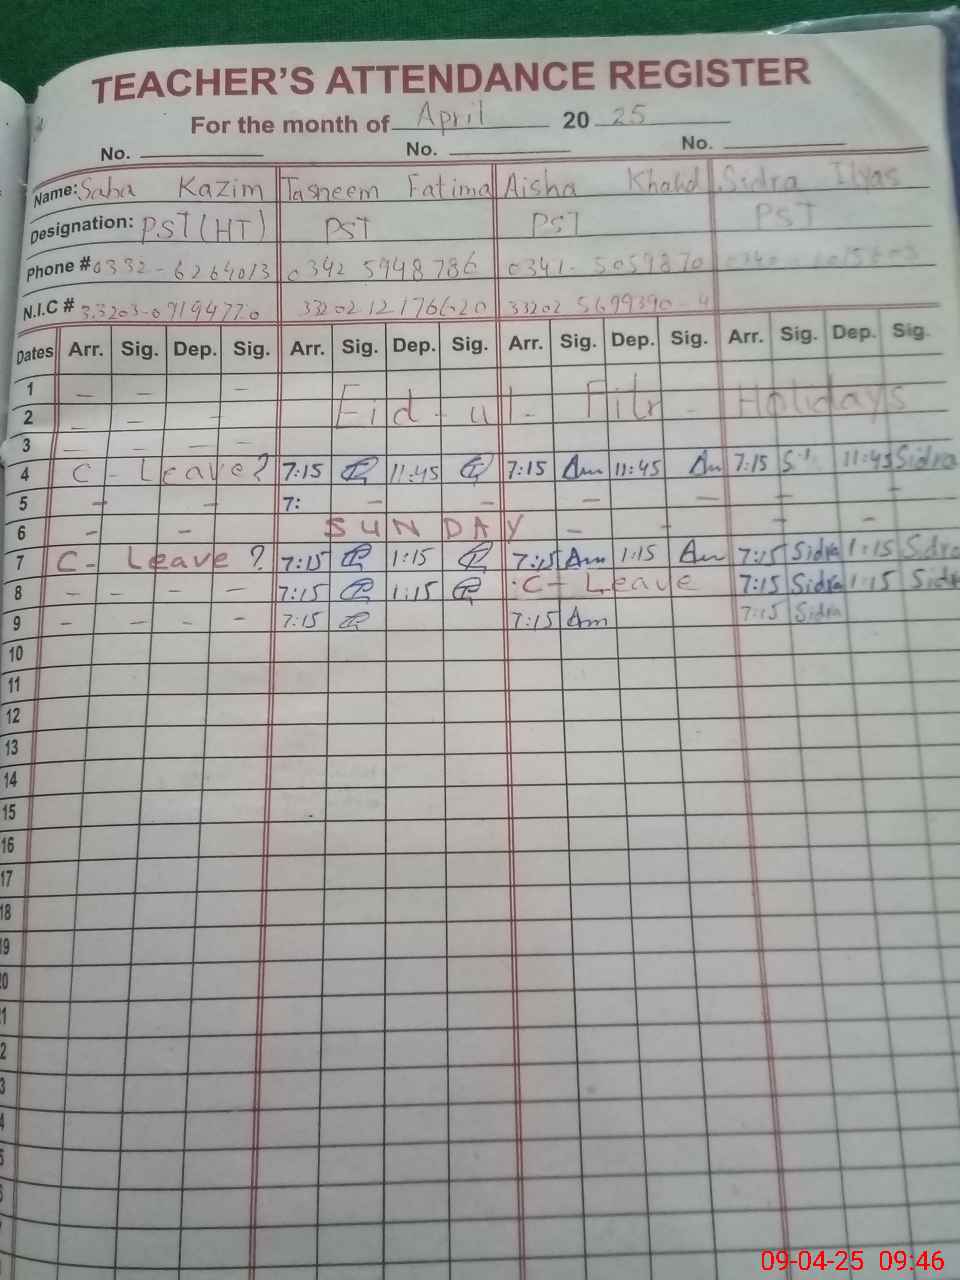 TEACHER'S ATTENDANCE REGISTER
For the month of April 20 25
No. No. No.
Name: Saba Kazim Tasneem Fatima Aisha Khalid Sidra Ilyas
Designation: PST(HT) PST PST PST
Phone # 0332-6264013 0342 5948786 0341-5059870
N.I.C # 33203-0919477-0 33202 12176620 33202 5699390-4
Dates Arr. Sig. Dep. Sig. Arr. Sig. Dep. Sig. Arr. Sig. Dep. Sig. Arr. Sig. Dep. Sig.
1 - - -
2 - - - Eid-ul-Fitr - Holidays
3 - - - -
4 C-Leave? 7:15 11:45 7:15 Am 11:45 Am 7:15 11:45 Sidra
5 - - 7: - - - - - -
6 - - SUNDAY - - - -
7 C-Leave? 7:15 1:15 7:15 Am 1:15 Am 7:15 Sidra 1:15 Sdra
8 - - - - 7:15 1:15 C-Leave 7:15 Sidra 1:15 Sidr
9 - - - - 7:15 7:15 Am 7:15 Sidra
10
11
12
13
14
15
16
17
18
19
20
1
2
3
4
5
09-04-25 09:46